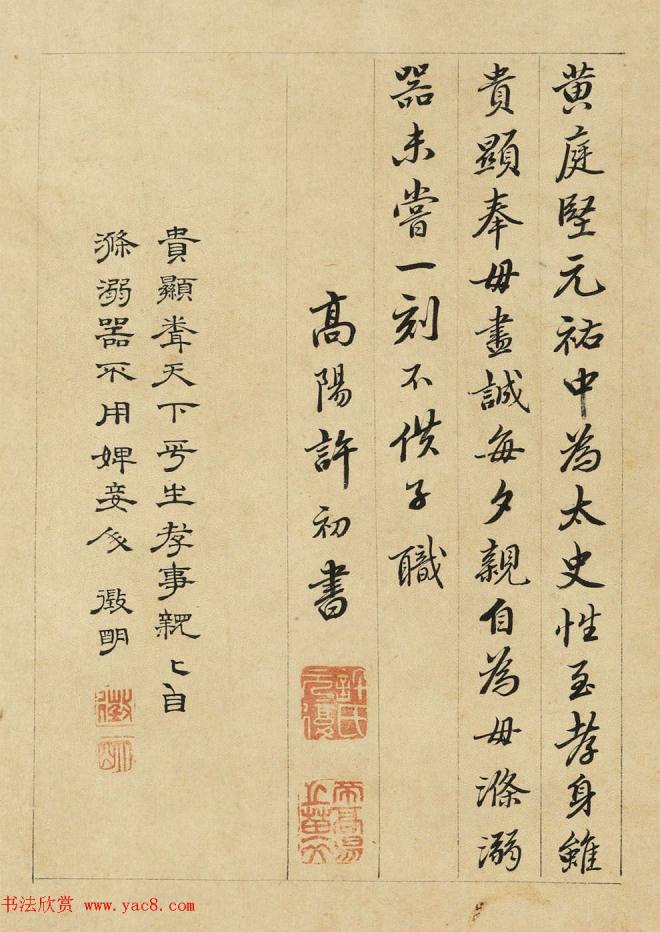 黄庭堅元祐中為太史性至孝身雖
貴顯奉母盡誠每夕親自為母滌溺
器未嘗一刻不供子職
高陽許初書
許氏元復
貴顯聞天下平生孝事親〻自
滌溺器不用婢妾人 徵明
徵明
书法欣赏 www.yac8.com